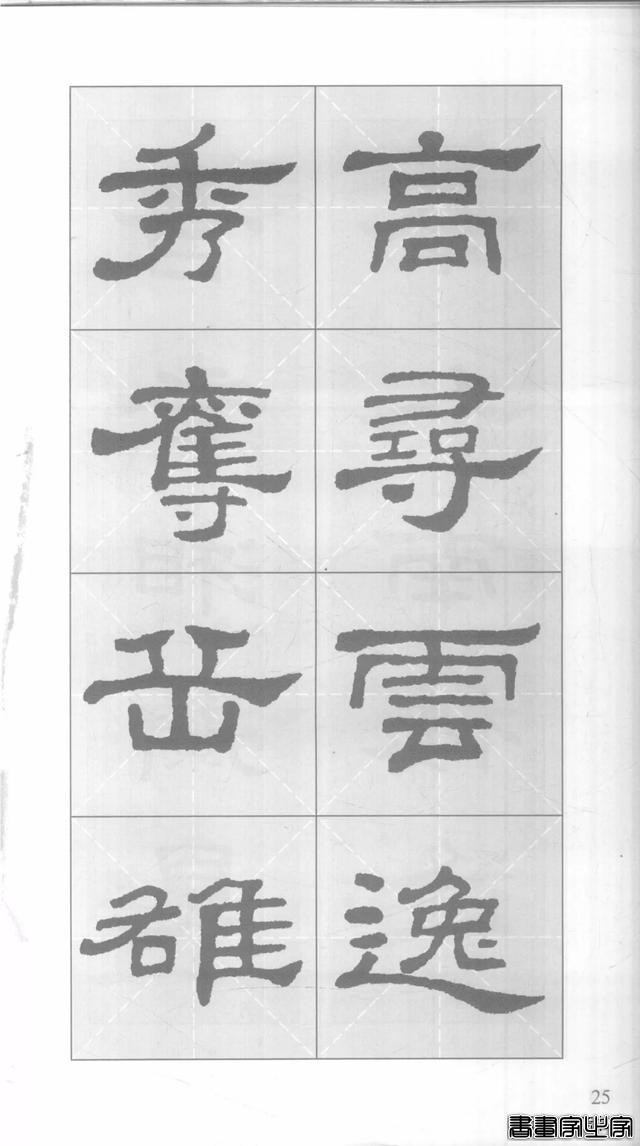 高尋雲逸
秀奪岳雄
25
書畫家必家